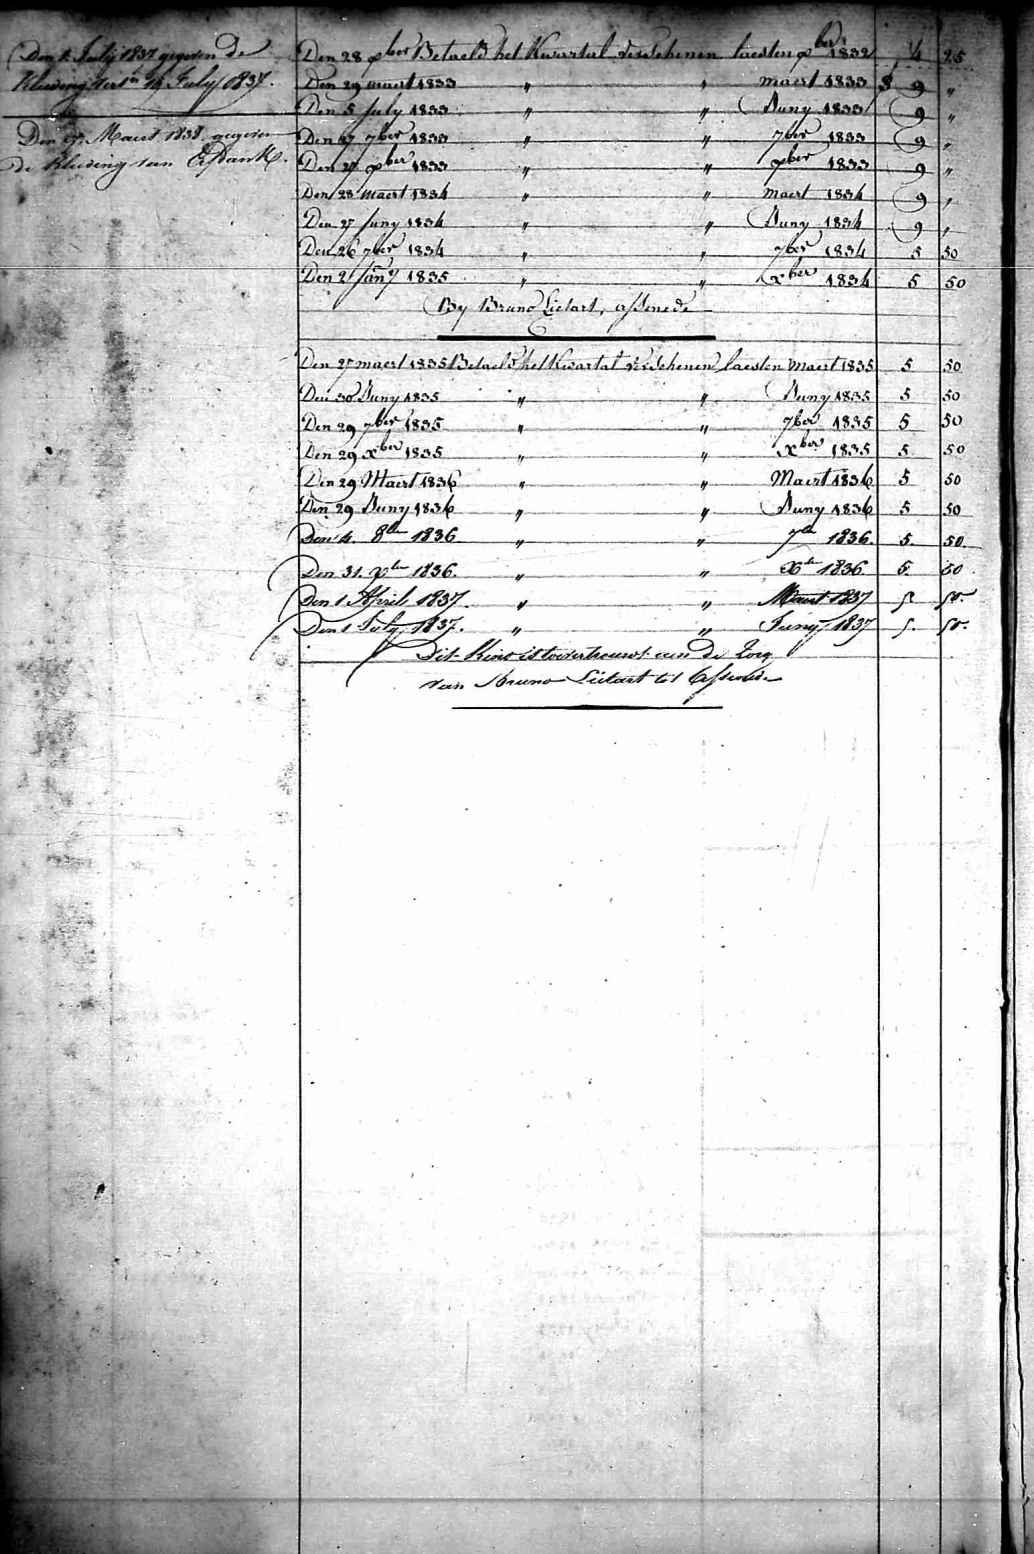 Den 1 July 1837 gegeven de
Kleeding 19 July 1837.
Den 27 Maert 1838 gegeven
de Kleeding van
Den 28 xber Betaeld het Kwartael verschenen laesten xber 1832 4 25
Den 29 maert 1833 " " maert 1833 9 "
Den 5 July 1833 " " Juny 1833 9 "
Den 27 7ber 1833 " " 7ber 1833 9 "
Den 27 xber 1833 " " xber 1833 9 "
Den 28 maert 1834 " " maert 1834 9 "
Den 27 Juny 1834 " " Juny 1834 9 "
Den 26 7ber 1834 " " 7ber 1834 5 50
Den 2 Jany 1835 " " xber 1834 5 50
By Bruno Lietart, assenede
Den 27 maert 1835 Betaeld het Kwartal verschenen laesten Maert 1835 5 50
Den 30 Juny 1835 " " Juny 1835 5 50
Den 29 7ber 1835 " " 7ber 1835 5 50
Den 29 xber 1835 " " xber 1835 5 50
Den 29 Maert 1836 " " Maert 1836 5 50
Den 29 Juny 1836 " " Juny 1836 5 50
Den 4. 8ber 1836 " " 7ber 1836. 5. 50.
Den 31. xber 1836. " " Xber 1836 5. 50
Den 1 April 1837. " " Maert 1837 5. 50.
Den 1 July 1837. " " Juny 1837 5. 50.
Dit Kind is toevertrouwt aen de Zorg
van Bruno Lietart tot Assenede